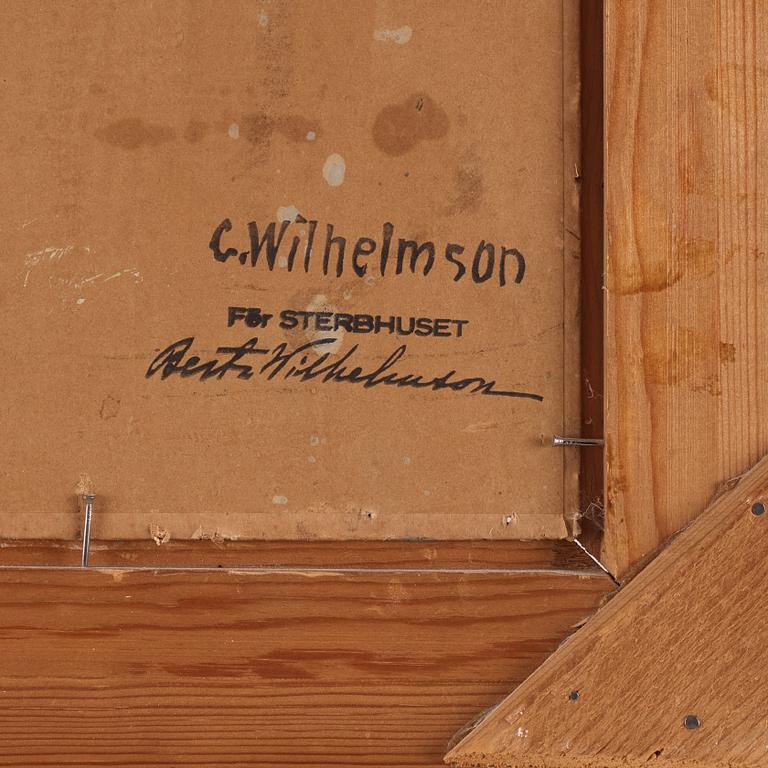 C. Wilhelmson
För STERBHUSET
Berta Wilhelmson